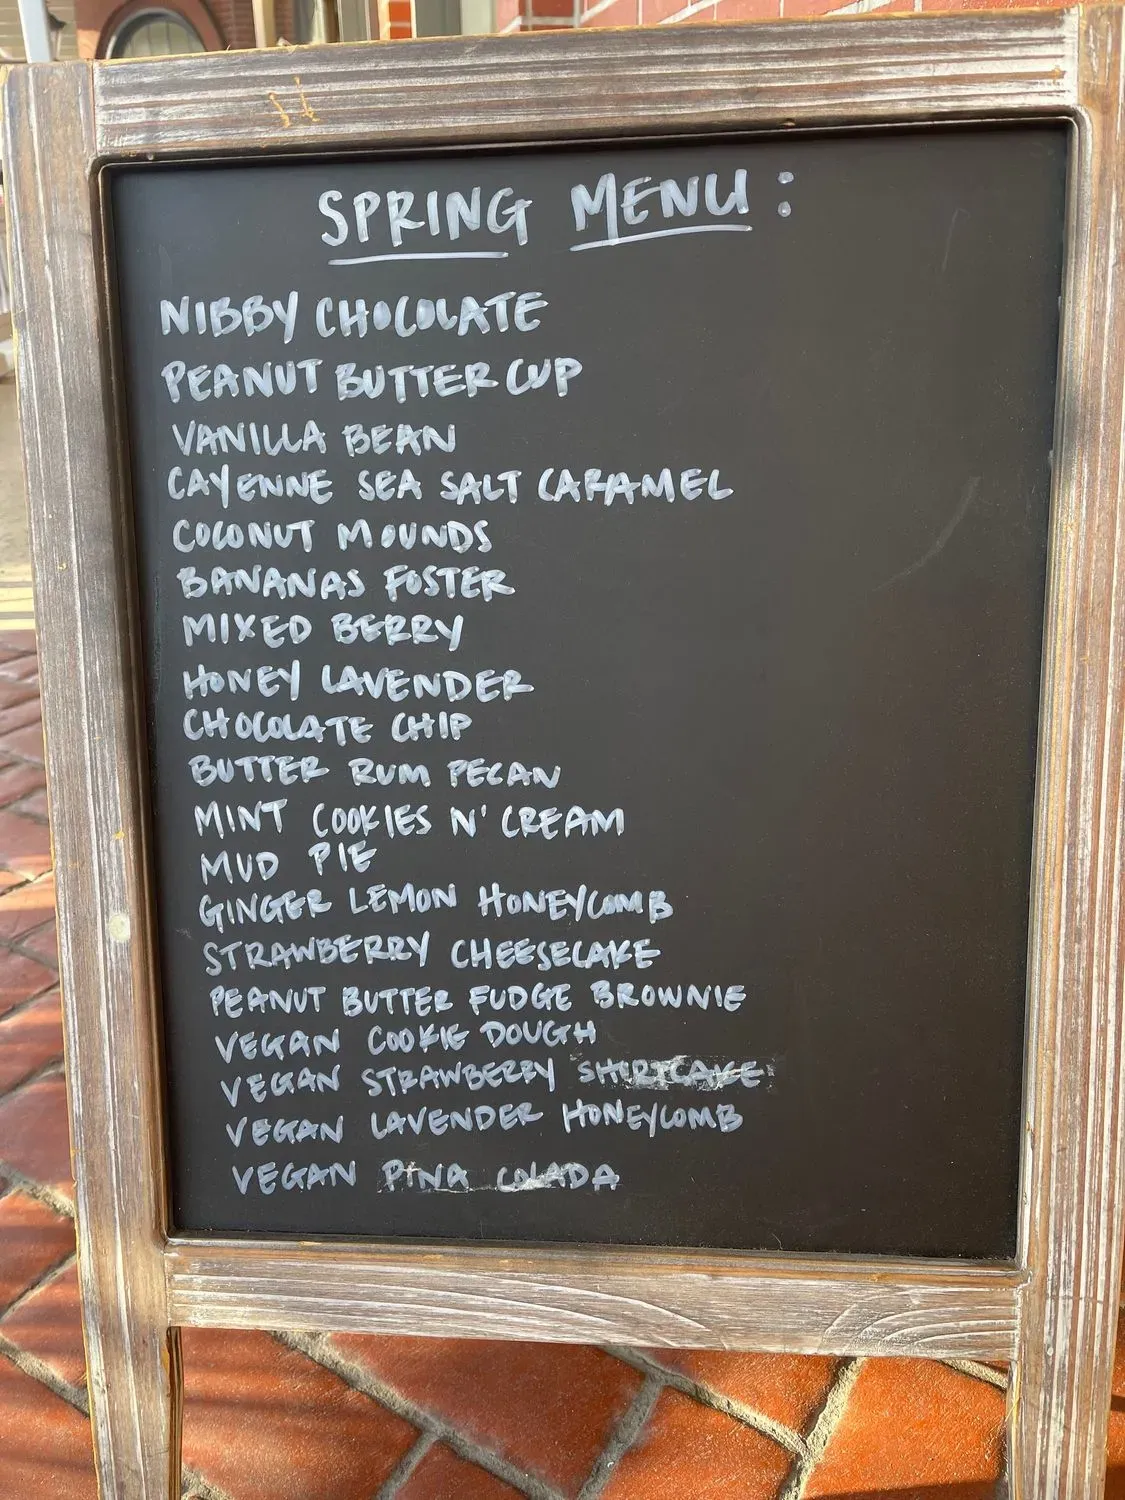 SPRING MENU:
NIBBY CHOCOLATE
PEANUT BUTTER CUP
VANILLA BEAN
CAYENNE SEA SALT CARAMEL
COCONUT MOUNDS
BANANAS FOSTER
MIXED BERRY
HONEY LAVENDER
CHOCOLATE CHIP
BUTTER RUM PECAN
MINT COOKIES N' CREAM
MUD PIE
GINGER LEMON HONEYCOMB
STRAWBERRY CHEESECAKE
PEANUT BUTTER FUDGE BROWNIE
VEGAN COOKIE DOUGH
VEGAN STRAWBERRY SHORTCAKE
VEGAN LAVENDER HONEYCOMB
VEGAN PINA COLADA